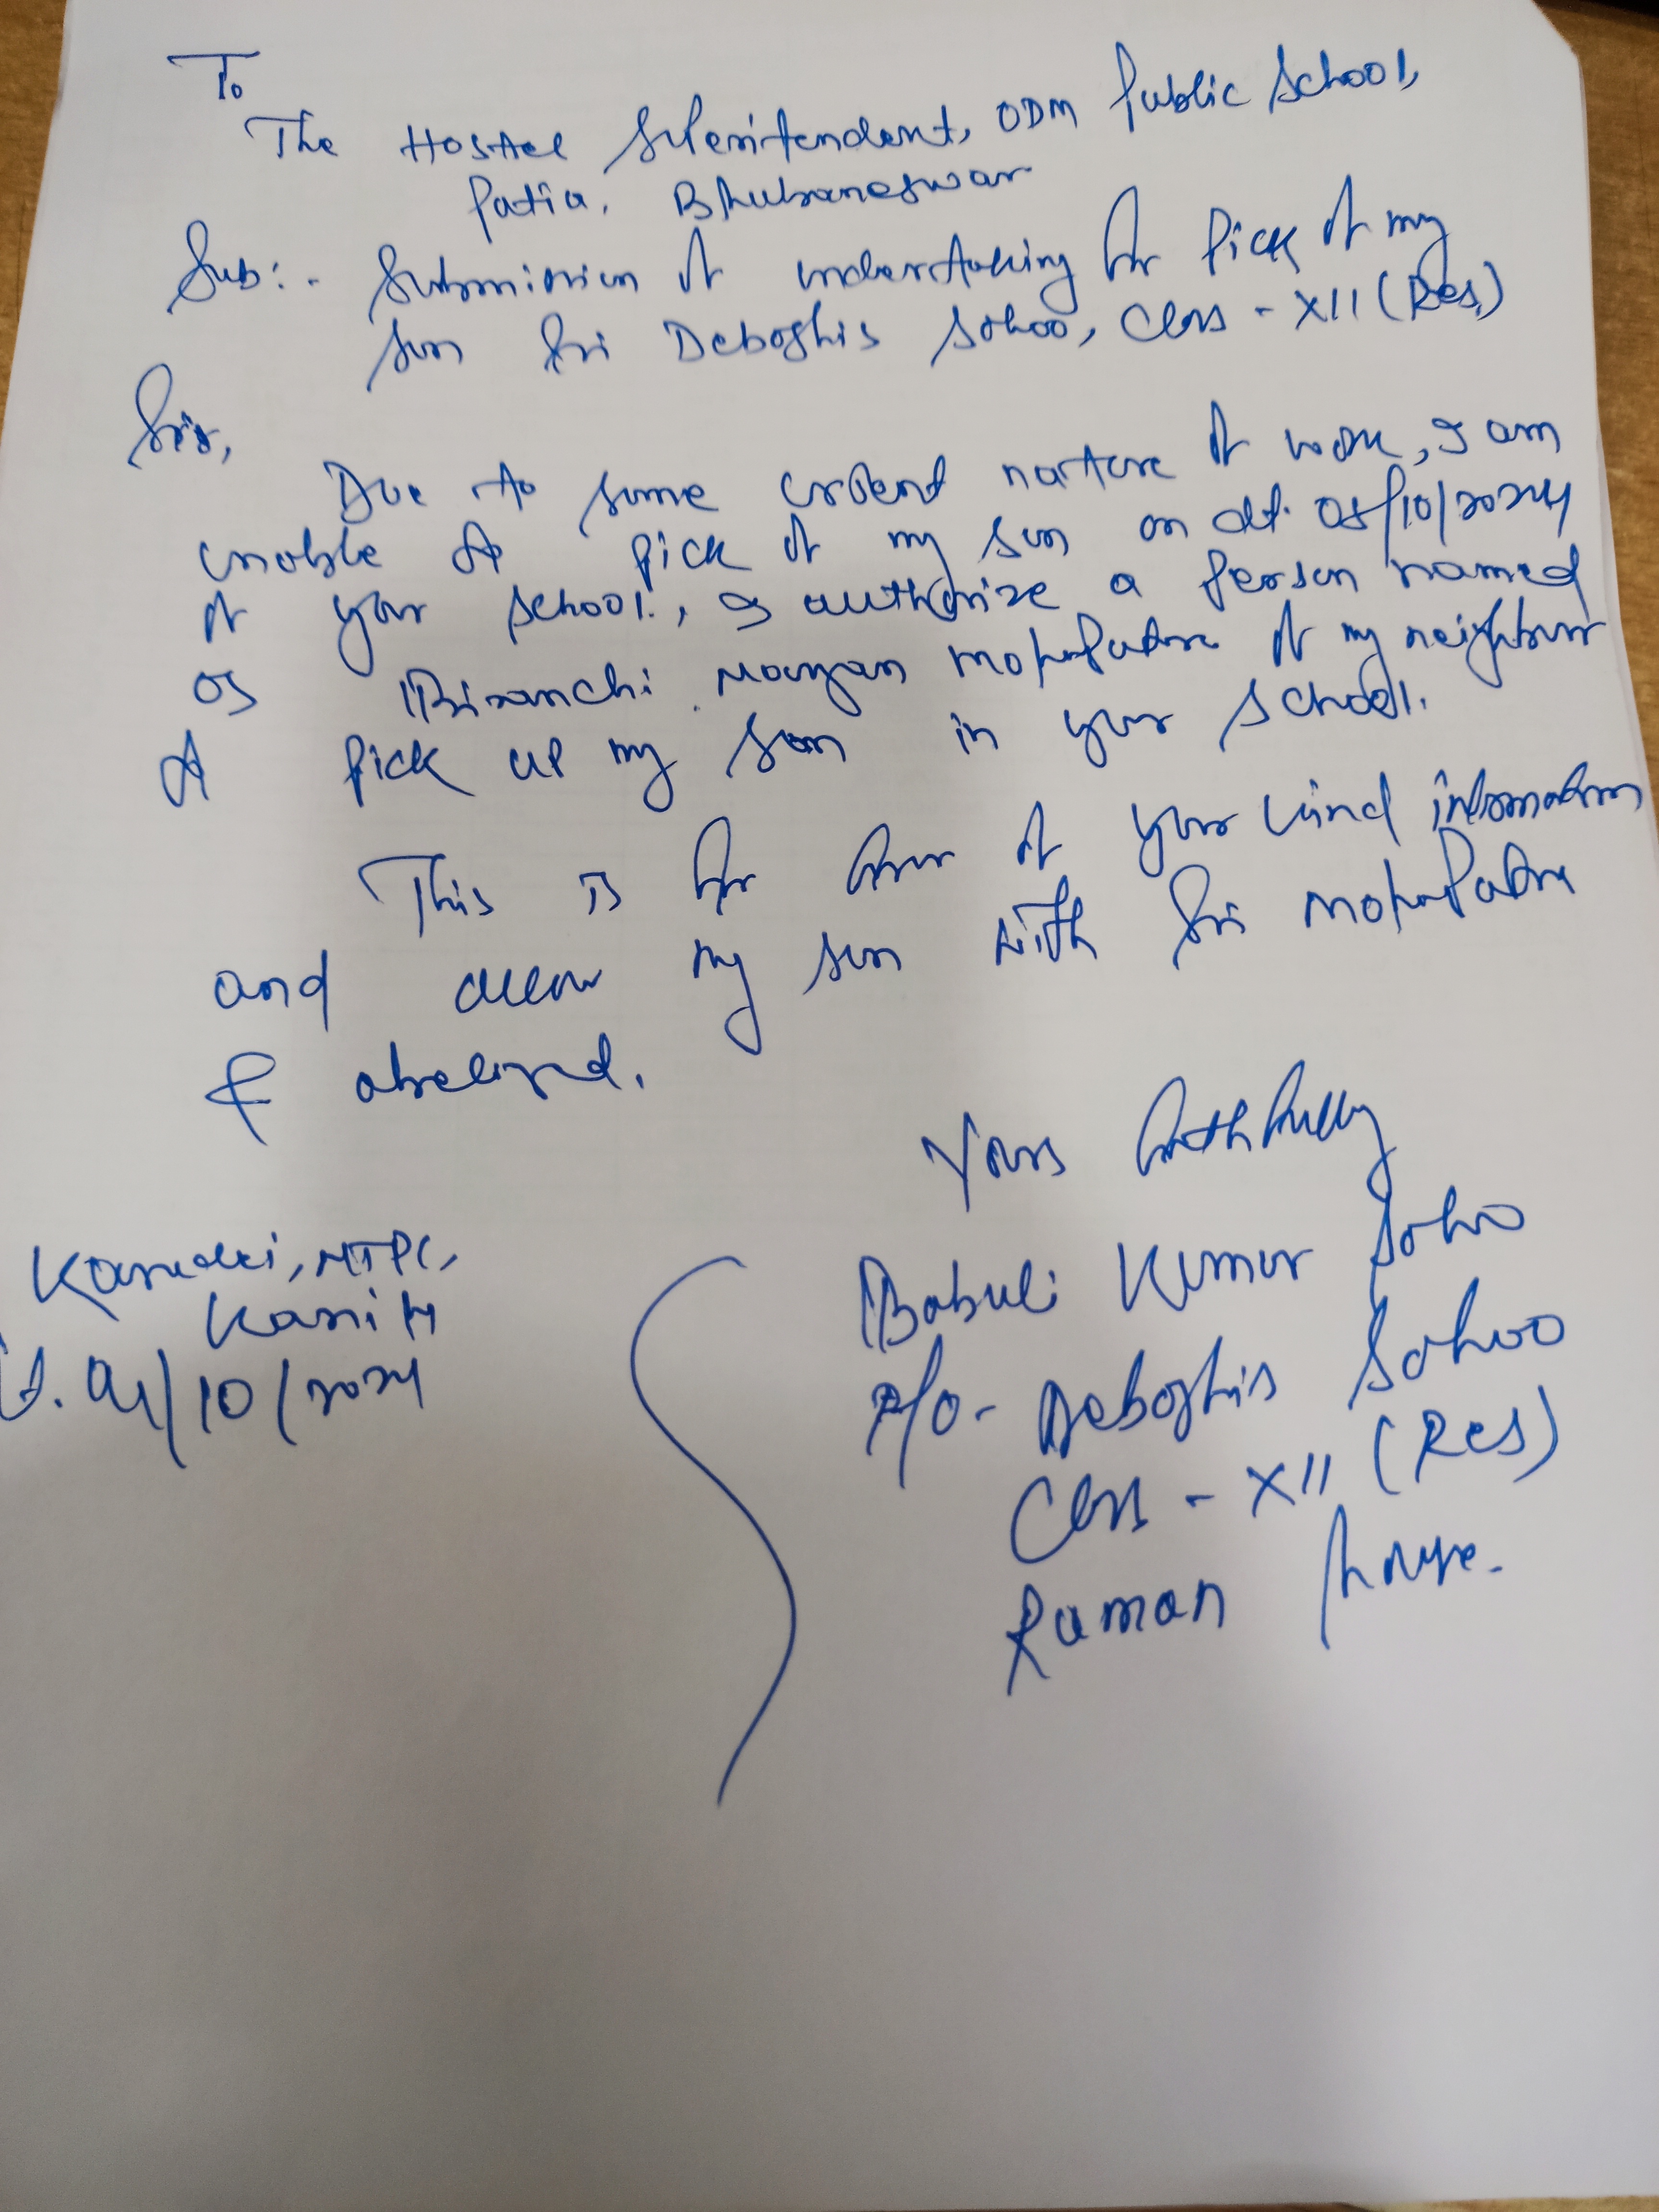 To
The Hostel Superitendent, ODM Public School,
Patia, Bhubaneswar
Sub:- Submission of undertaking for pick of my
son Sri Debashis Sahoo, Class - XII (Res.)
Sir,
Due to some urgent nature of work, I am
unable to pick of my son on dt. 05/10/2024
of your school, I authorize a person named
as Biranchi Narayan Mohapatra of my neighbour
to pick up my son in your school.
This is for favour of your kind information
and allow my son with Sri Mohapatra
&
Yours faithfully
Kaniha, NTPC,
Kaniha
04/10/2024
Babuli Kumar Sahoo
F/O- Debashis Sahoo
Class - XII (Res)
Raman house.